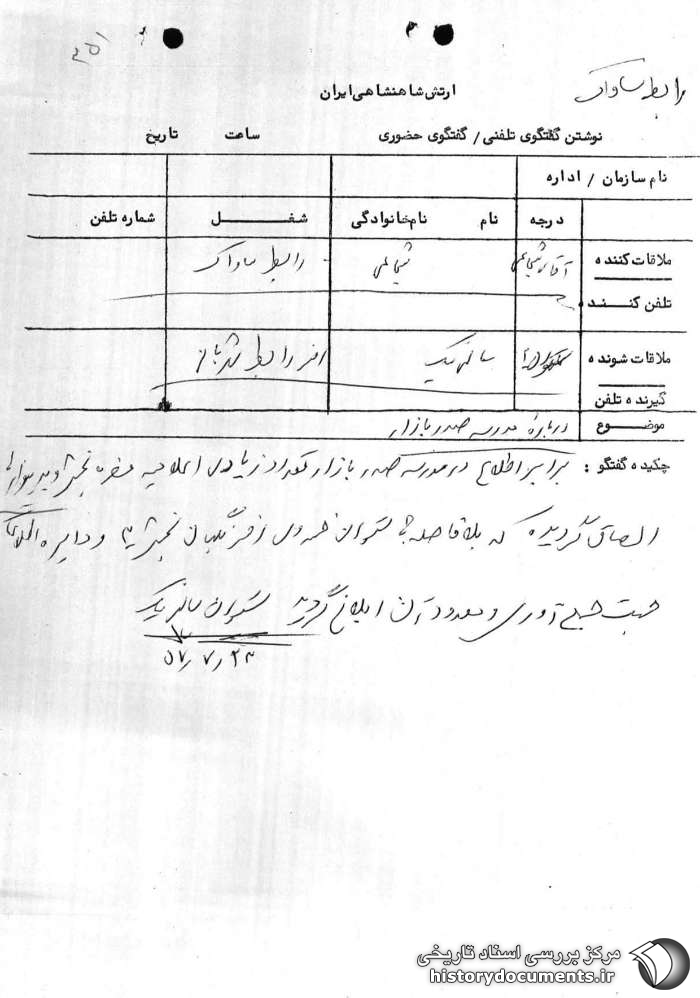 ۳۵۱
رابط ساواک
ارتش شاهنشاهی ایران
نوشتن گفتگوی تلفنی / گفتگوی حضوری ساعت تاریخ
نام سازمان / اداره
درجه نام نام خانوادگی شغل شماره تلفن
ملاقات کننده آقای شجاعی شجاعی رابط ساواک
تلفن کننده
ملاقات شونده سالم نیک افسر رابط شهربانی
گیرنده تلفن
موضوع درباره مدرسه صدر بازار
چکیده گفتگو : برابر اطلاع در مدرسه صدر بازار تعداد زیادی اعلامیه مضره پخش و بدیوارها
الصاق گردیده که بلافاصله به ستوان افسر نگهبان بخش ۳ و دایره اطلاعات
جهت جمع آوری و معدود آن ابلاغ گردید ستوان سالم نیک
۵۷٫۷٫۲۳
مرکز بررسی اسناد تاریخی
historydocuments.ir